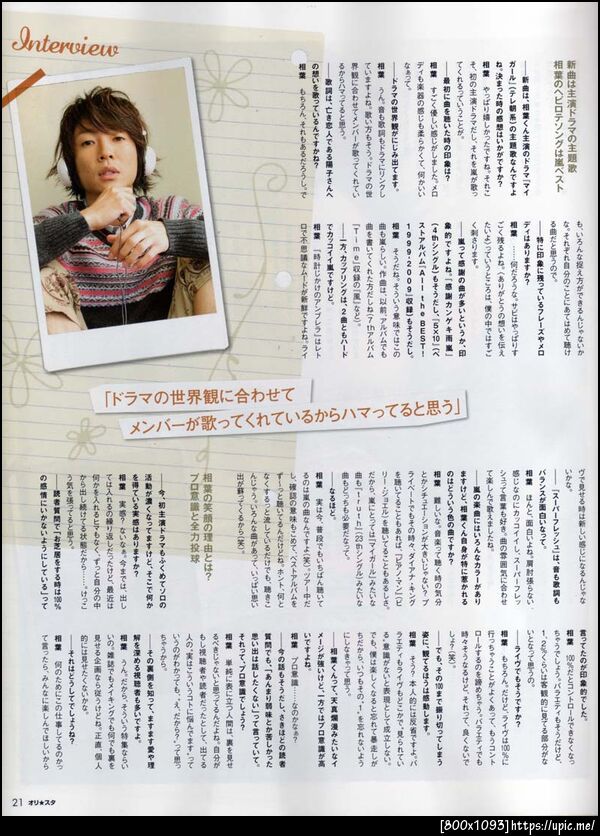 Interview
新曲は主演ドラマの主題歌
相葉のヘビロテソングは嵐ベスト
──新曲は、相葉くん主演のドラマ『マイ
ガール』(テレ朝系)の主題歌なんですよ
ね。決まった時の感想はいかがですか?
相葉 やっぱり嬉しかったですね。それこ
そ、初の主演ドラマだし、それを嵐が歌っ
てくれるっていうことが。
──最初に曲を聴いた時の印象は?
相葉 すごく優しい感じがしました。メロ
ディも楽器の感じも柔らかくて、何かいい
なぁって。
──ドラマの世界観がにじみ出てます。
相葉 うん。音も歌詞もドラマにリンクし
ていますよね。歌い方もそう。ドラマの世
界観に合わせてメンバーが歌ってくれてい
るからハマってると思う。
──歌詞は、亡き恋人である陽子さんへ
の想いを歌っているんですかね?
相葉 もちろん、それもあるだろうし、で
も、いろんな捉え方ができるんじゃないか
な。それぞれ自分のことにあてはめて聴け
る曲だと思うので。
──特に印象に残っているフレーズやメロ
ディはありますか?
相葉 ……何だろうな。サビはやっぱりす
ごく残るよね。「ありがとうの想いを伝え
たいよ」っていうところは、僕の中ではすご
く刺さります。
──嵐って感謝の曲が多いというか、印
象的ですよね。『感謝カンゲキ雨嵐』
(4thシングル)もそうだし、『5×10』(ベ
ストアルバム「All the BEST!
1999-2009」収録)もそうだし。
相葉 そうだね。そういう意味ではこの
曲も嵐らしい。作曲は、以前、アルバムでも
曲を書いてくれた方だしね(7thアルバム
「Time」収録の『風』など)。
──一方、カップリングは、2曲ともハード
でカッコイイ嵐ですけど。
相葉 『時計じかけのアンブレラ』はレト
ロで不思議なムードが新鮮ですよね。ライ
「ドラマの世界観に合わせて
メンバーが歌ってくれているからハマってると思う」
ヴで見せる時は新しい感じになるんじゃな
いかな。
──『スーパーフレッシュ』は、音も歌詞も
バランスが面白いなって。
相葉 ほんと、面白いよね。肩肘張らない
感じなのにカッコイイし、スーパーフレッ
シュって言葉も好き。曲の雰囲気に合わせ
て楽しんで歌えました。
──嵐の楽曲にはいろんなカラーがあり
ますけど、相葉くん自身が特に惹かれる
のはどういう色の曲ですか?
相葉 難しいな。音楽って聴く時の気分
とかシチュエーションが大きいじゃない? プ
ライベートでもその時々、ダイアナ・キング
を聴いてることもあれば、『ピアノ・マン』(ビ
リー・ジョエル)を聴いてることもあるしさ。
だから、嵐にとっては『マイガール』みたいな
曲も『truth』(23thシングル)みたいな
曲もどっちも必要だなって。
──なるほど。
相葉 実は今、普段でもいちばん聴いて
るのは嵐の曲なんですよ(笑)。ツアー中だ
し、確認の意味もこめて、ベストアルバムを
ずーっと聴いてるんだけどね。ホント、何気
なくすると流しているだけでも、聴きこ
んじゃう。いろんな曲があって、いっぱい思い
出が蘇ってくるから(笑)。
相葉の笑顔の理由とは?
プロ意識と全力投球
──今、初主演ドラマもふくめてソロの
活動が濃くなってますけど、そこで何か
を得ている実感はありますか?
相葉 実感? ないなぁ。今までは、出し
ては入れるの繰り返しだったけど、最近は
何かを入れるヒマもなく、ずっと自分の中
から出し続けてる状態だから……。けっこ
う気を張ってると思う。
──読者質問で「お芝居をする時は100%
の感情にいかないようにしている」って
言ってたのが印象的でした。
相葉 100%だとコントロールできなくな
っちゃうでしょう。バラエティもそうだけど、
1、2%くらいは客観的に見てる部分がな
いとなって思うの。
──ライヴでもそうですか?
相葉 もちろん。だけど、ライヴは100%に
行っちゃうことがよくあって、もうコント
ロールするのを諦めちゃう。バラエティでも
時々そうなるけど。それって、良くないで
しょ?(笑)
──でも、その100まで振り切ってしまう
姿に、観てるほうは感動します。
相葉 そう? 本人的には反省ですよ。バ
ラエティもライヴもどこかで「見られてい
る」意識がないと表現として成立しない。
でも、僕は楽しくなると忘れて暴走しが
ちだから、いつもその「1」を忘れないよう
にしなきゃって思う。
──相葉くんって、天真爛漫みたいなイ
メージが強いけど、一方ではプロ意識が高
いですよね。
相葉 プロ意識……なのかなぁ?
──今の話もそうだし、さっきほどの読者
質問でも、「あんまり弱味とか苦しかった
思い出は話したくない」って言っていて。
それって、プロ意識でしょう?
相葉 単純に表に立つ人間は、裏を見せ
るべきじゃないと思ってるんだよね。自分が
もし視聴者や読者だったとして、出てる
人の“実はこういうコトに悩んでます”って
いうのがわかっても、“え、だから?”って思
っちゃうから。
──その裏側を知って、ますます愛や理
解を深める視聴者も多いですよ。
相葉 うん。だから、そういう特集ならい
いの。雑誌でもメイキングでも何でも裏を
見せる企画なら従うけれど。正直、個人
的には見せたくないかな。
──それはどうしてでしょうね?
相葉 何のためにこの仕事してるのかっ
て言ったら、みんなに楽しんでほしいから
21 オリ★スタ
[800x1093]https://upic.me/